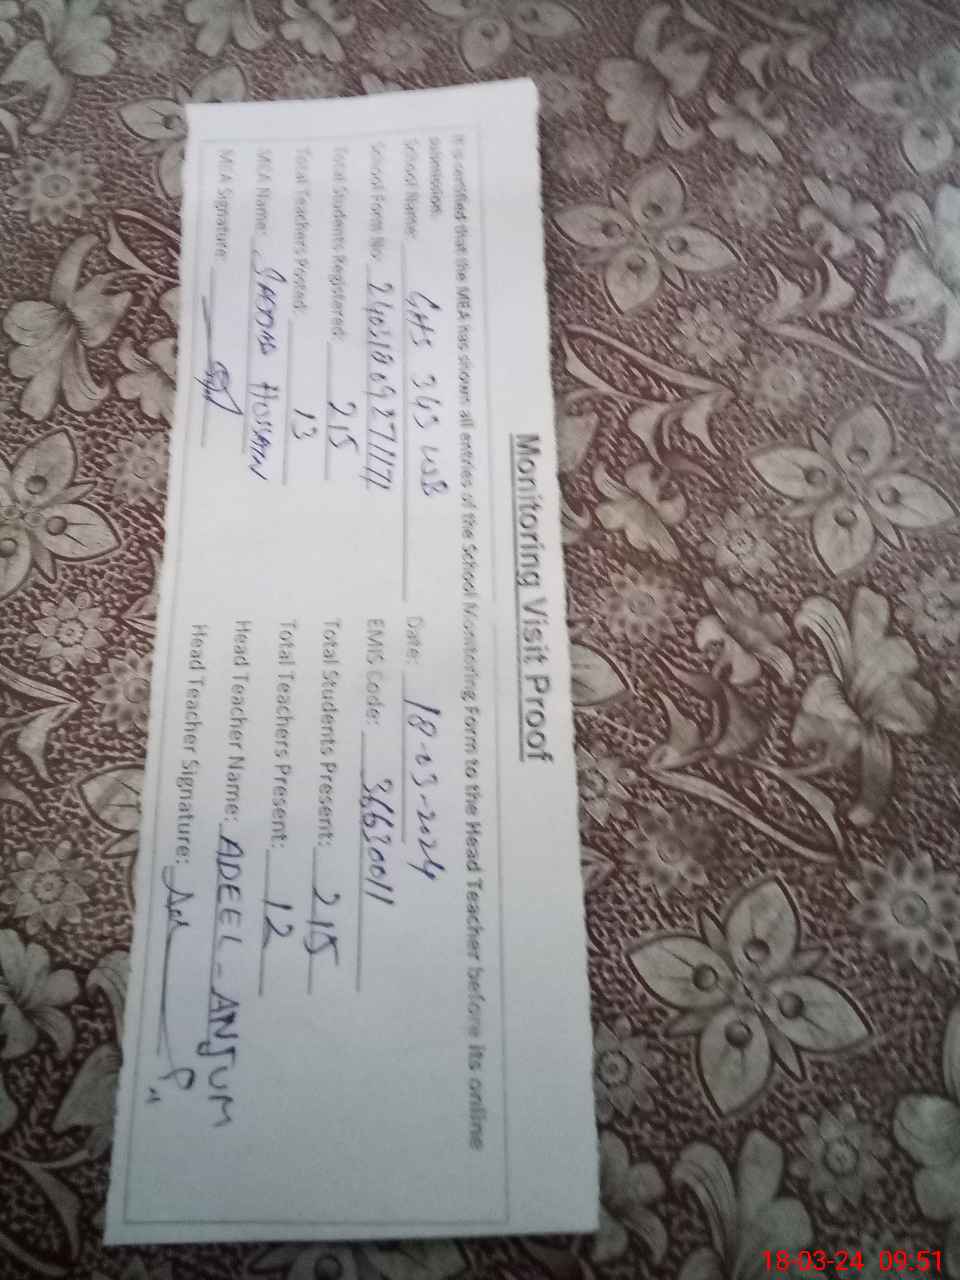 Monitoring Visit Proof
It is certified that the MEA has shown all entries of the School Monitoring Form to the Head Teacher before its online
submission.
School Name: GHS 343 WB Date: 18-03-2024
School Form No. EMIS Code: 36630011
Total Students Registered: 215 Total Students Present: 215
Total Teachers Posted: 13 Total Teachers Present: 12
MEA Name: HUSSAIN Head Teacher Name: ADEEL-ANJUM
MEA Signature: Head Teacher Signature:
18-03-24 09:51